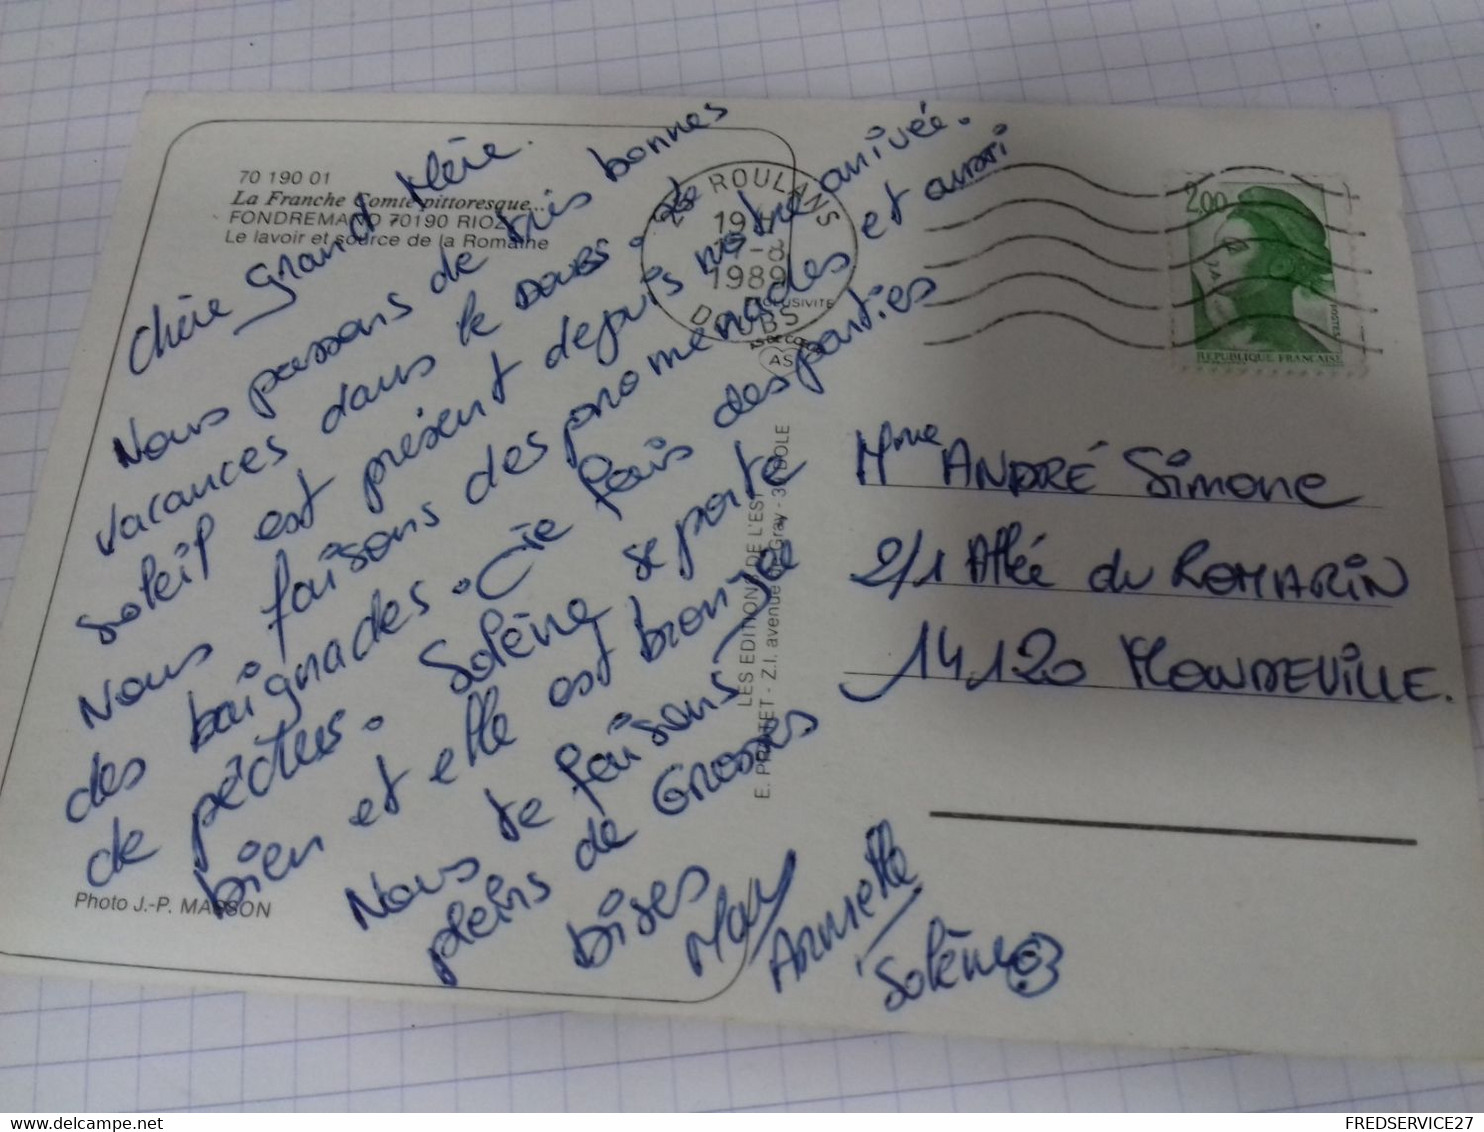 70 190 01
La Franche Comté pittoresque...
FONDREMAND 70190 RIOZ
Le lavoir et source de la Romaine
Chère Grand Mère.
Nous passons de très bonnes
vacances dans le DOUBS. Le
soleil est présent depuis notre arrivée.
Nous faisons des promenades et aussi
des baignades. fais des parties
de pêches. Solène se porte
bien et elle est bronzée
Nous te faisons
pleins de Grosses
bises
May
Armelle
Solène
25 ROULANS
19H
7-8
1989
DOUBS
EXCLUSIVITE
AS DE CŒUR
AS
LES EDITIONS DE L'EST
E. PROTET - Z.I. avenue de Gray - 39 DOLE
Photo J.-P. MASSON
2,00
POSTES
REPUBLIQUE FRANÇAISE
Mme ANDRÉ Simone
2/1 Allée du ROMARIN
14120 MONDEVILLE.
delcampe.net
FREDSERVICE27